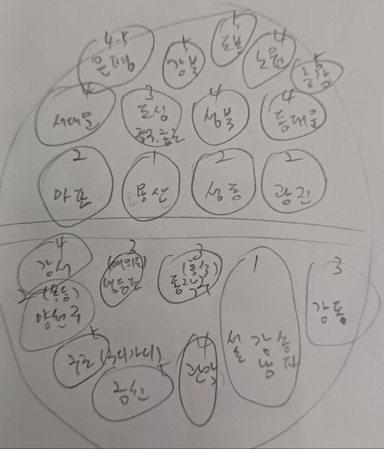 4.5
은평
5
강북
5
도봉
4
노원
5
중랑
4
서대문
3
도심
중구.종로
4
성북
4
동대문
2
마포
1
용산
2
성동
2
광진
4
강서
2 (목동)
양천구
3
(여의도)
영등포
3
동작
1
서초 강남 송파
3
강동
5
구로 (구디가디)
5
금천
4
관악